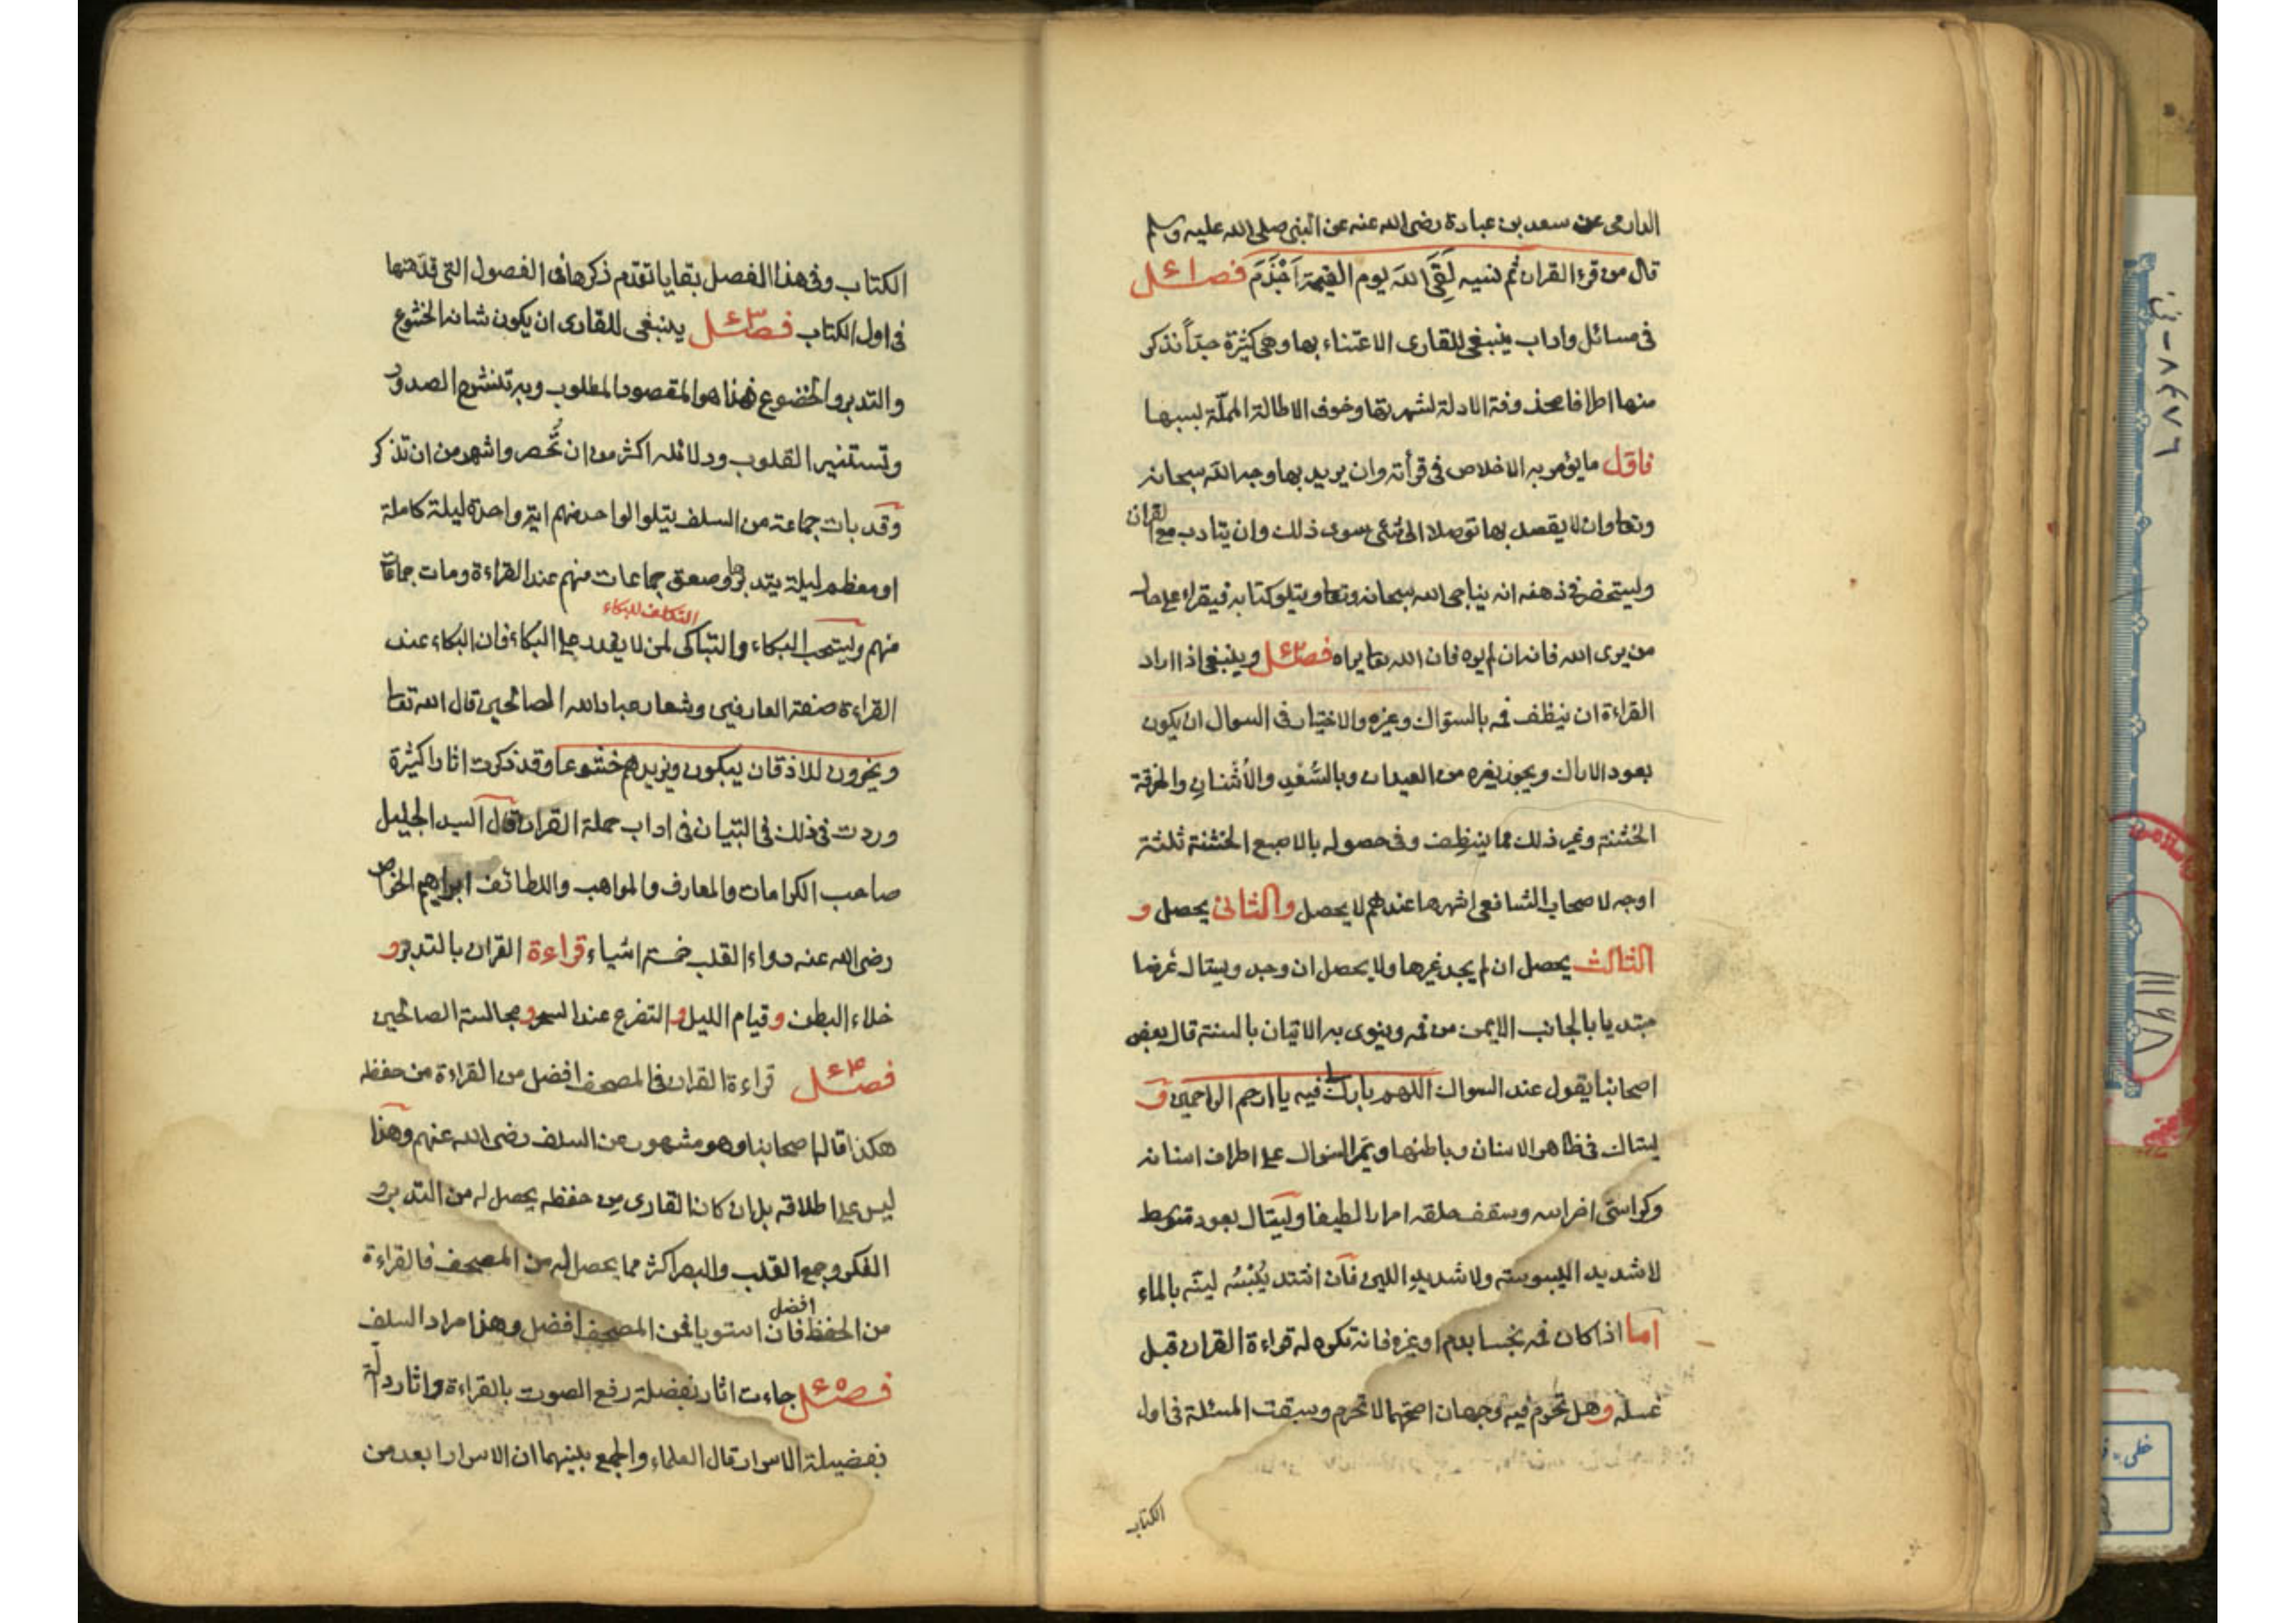 الدارمى عن سعد بن عبادة رضى الله عنه عن النبى صلى الله عليه وسلم
قال من قرء القران ثم نسيه لَقِىَ اللهَ يوم القيمة اَجْذَمَ فصل
فى مسائل واداب ينبغى للقارى الاعتناء بها وهى كثيرة جدّاً نذكر
منها اطرافا محذوفة الادلة لشهرتها وخوف الاطالة المملّة بسببها
فاوّل ما يؤمر به الاخلاص فى قرأته وان يريد بها وجه الله سبحانه
وتعا وان لا يقصد بها توصلا الى شئ سوى ذلك وان يتادب مع القران
وليستحضر فى ذهنه انه يناجى الله سبحانه وتعا ويتلو كتابه فيقراء على حال
من يرى الله فانه ان لم يره فان الله تعا يراه فصل وينبغى اذا اراد
القراءة ان ينظف فمه بالسواك وغيره والاختيار فى السواك ان يكون
بعود الاراك ويجوز بغيره من العيدان وبالسُّعْدِ والاُشْنانِ والخرقة
الخشنة وغير ذلك مما ينظف وفى حصوله بالاصبع الخشنة ثلثة
اوجه لاصحاب الشافعى اشهرها عندهم لا يحصل والثانى يحصل و
الثالث يحصل ان لم يجد غيرها ولا يحصل ان وجد ويستاك عرضا
مبتديا بالجانب الايمن من فمه وينوى به الاتيان بالسنة قال بعض
اصحابنا يقول عند السواك اللهم بارك لى فيه يا ارحم الراحمين و
يستاك فى ظاهر الاسنان وباطنها ويمرّ السواك على اطراف اسنانه
وكراسى اضراسه وسقف حلقه امرارا لطيفا ويستاك بعود متوسط
لا شديد اليبوسة ولا شديد اللين فان اشتد يُبْسُه ليّنه بالماء
اما اذا كان فمه نجسا بدم او غيره فانه تكره له قراءة القران قبل
غسله وهل تحرم فيه وجهان اصحهما لا تحرم وسبقت المسئلة فى اول
الكتاب
الكتاب وفى هذا الفصل بقايا تقدم ذكرها فى الفصول التى قدّمتها
فى اول الكتاب فصل ينبغى للقارى ان يكون شانه الخشوع
والتدبر والخضوع فهذا هو المقصود المطلوب وبه تنشرح الصدور
وتستنير القلوب ودلائله اكثر من ان تُحصر واشهر من ان تذكر
وقد بات جماعة من السلف يتلوا الواحد منهم اية واحدة ليلة كاملة
او معظم ليلة يتدبرها وصعق جماعات منهم عند القراءة ومات جماعات
التكلف للبكاء
منهم وليستحب البكاء والتباكى لمن لا يقدر على البكاء فان البكاء عند
القراءة صفة العارفين وشعار عباد الله الصالحين قال الله تعا
ويخرون للاذقان يبكون ويزيدهم خشوعا وقد ذكرت اثارا كثيرة
وردت فى ذلك فى التبيان فى اداب حملة القران قال السيد الجليل
صاحب الكرامات والمعارف والمواهب واللطائف ابراهيم الخواص
رضى الله عنه دواء القلب خمسة اشياء قراءة القران بالتدبر و
خلاء البطن وقيام الليل والتضرع عند السحر ومجالسة الصالحين
فصل قراءة القران فى المصحف افضل من القراءة من حفظه
هكذا قاله اصحابنا وهو مشهور عن السلف رضى الله عنهم وهذا
ليس على اطلاقه بل ان كان القارى من حفظه يحصل له من التدبر و
الفكر وجمع القلب والبصر اكثر مما يحصل له من المصحف فالقراءة
من الحفظ افضل فان استويا فمن المصحف افضل وهذا مراد السلف
فصل جاءت اثار بفضلة رفع الصوت بالقراءة واثار دالّة
بفضيلة الاسرار قال العلماء والجمع بينهما ان الاسرار ابعد من